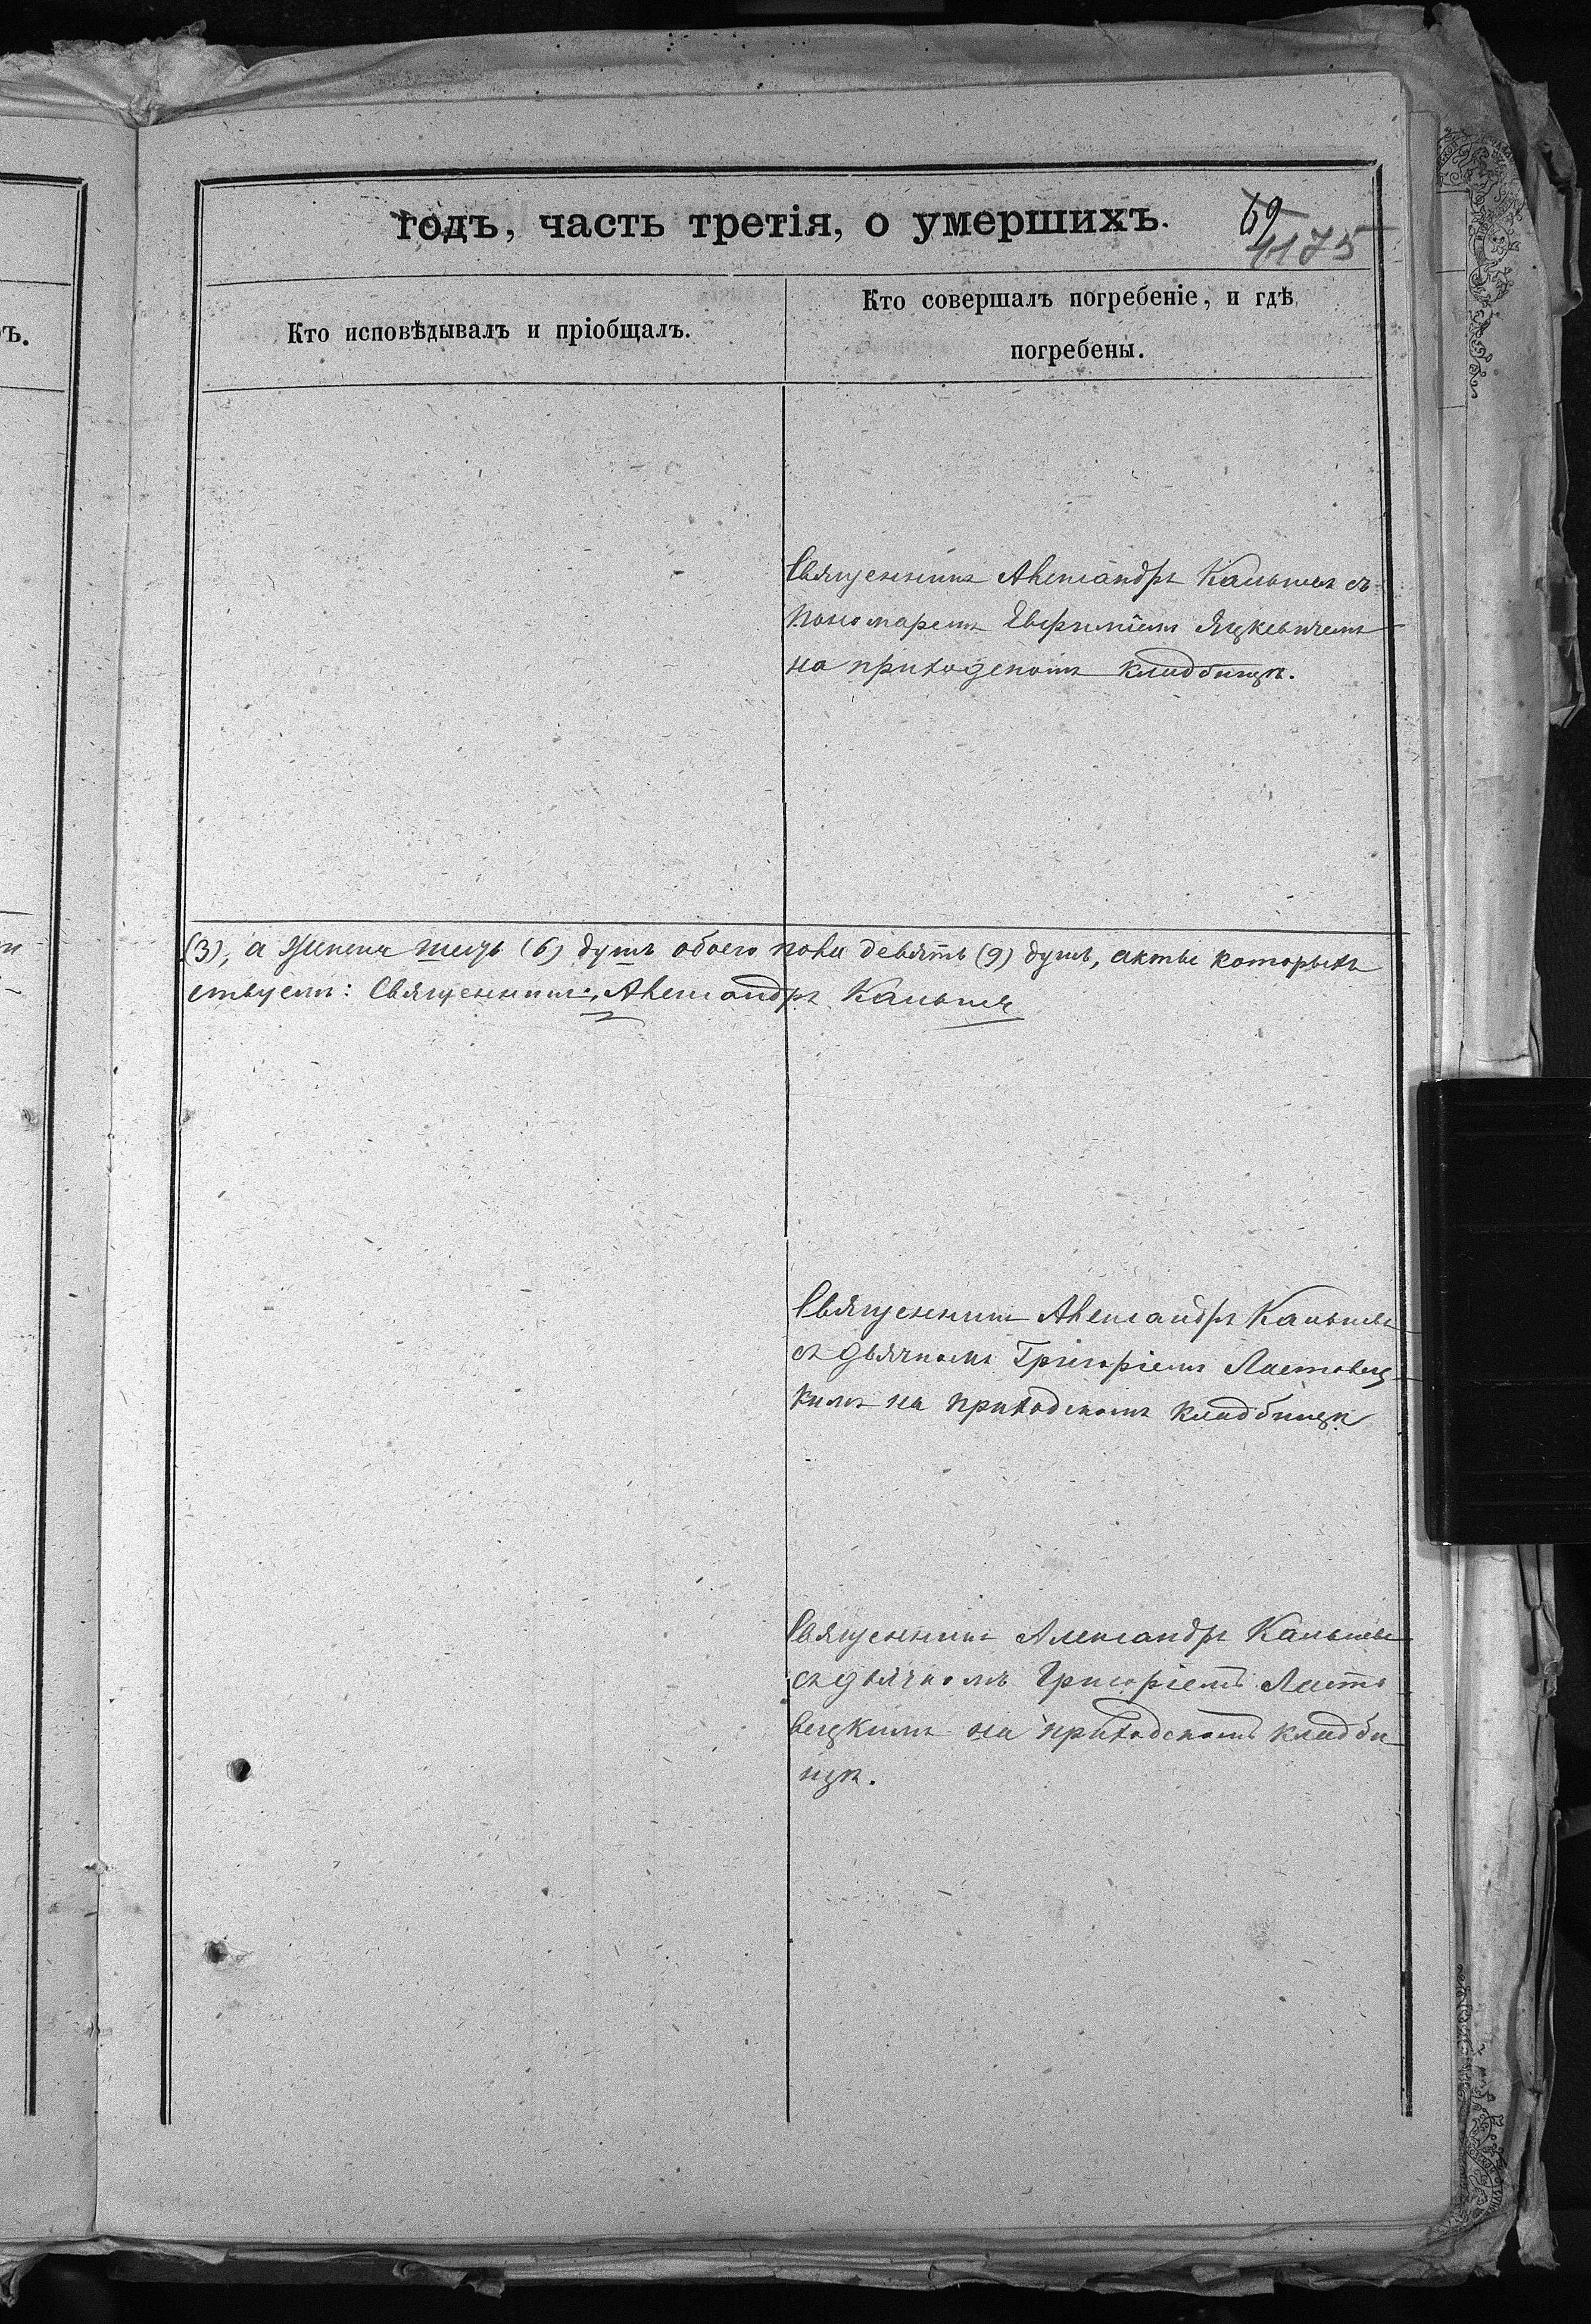 ъ.
годъ, часть третія, о умершихъ.
69
1175
Кто исповѣдывалъ и пріобщалъ.
Кто совершалъ погребеніе, и гдѣ
погребены.
Священникъ Александръ съ
пономаремъ Евфиміемъ Яцкевичемъ
на приходскомъ кладбищѣ.
(3), а женска шесть (6) душъ обоего пола девять (9) душъ, акты которыхъ
ствуемъ: Священникъ Александръ
Священникъ Александръ
съ дьячкомъ Григоріемъ Ластовец
кимъ на приходскомъ кладбищѣ
Священникъ Александръ
съ дьячкомъ Григоріемъ Ласто
вецкимъ на приходскомъ кладби
щѣ.